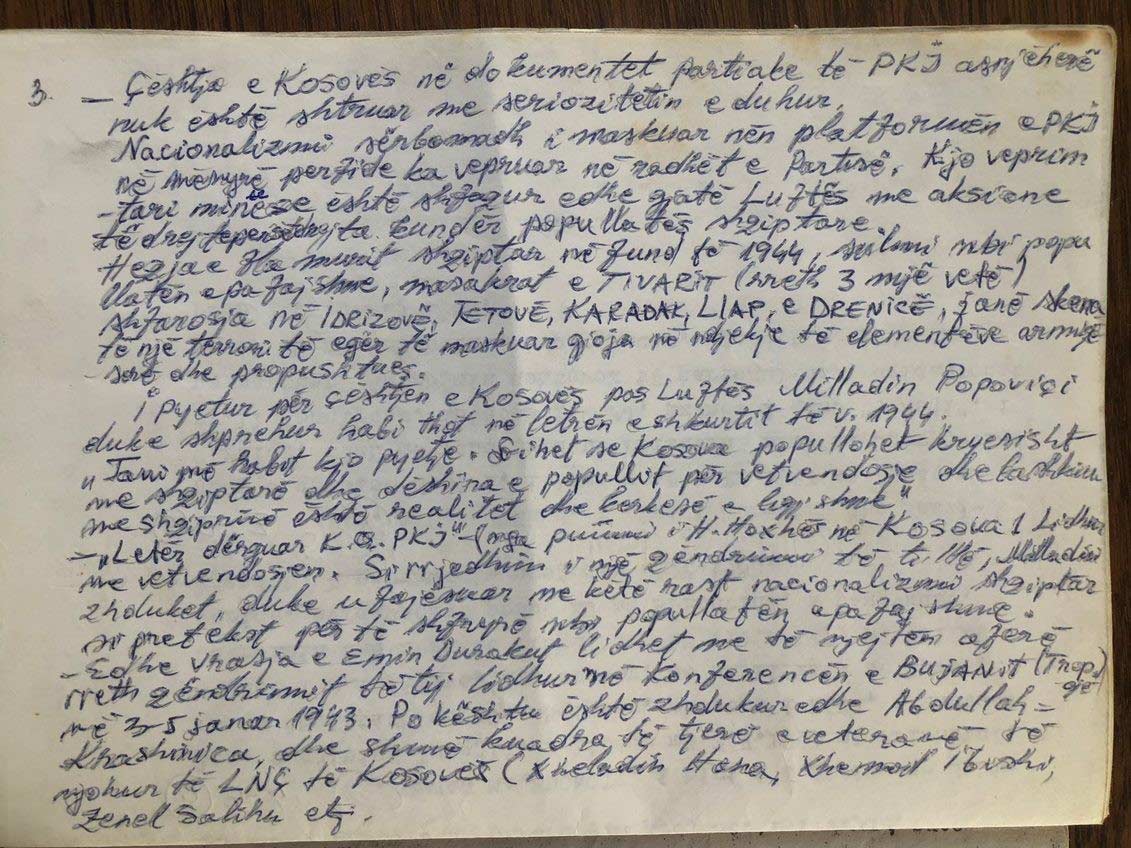 3. — Çështja e Kosovës në dokumentet partiake të PKJ asnjëherë
nuk është shtruar me seriozitetin e duhur.
Nacionalizmi sërbomadh i maskuar nën platformën e PKJ
në mënyrë perfide ka vepruar në radhët e Partisë. Kjo veprim
-tari minuese është shfaqur edhe gjatë Luftës me aksione
të drejtëpërdrejta kundër popullatës shqiptare.
Hedhja e murit shqiptar në fund të 1944, sulmi mbi popu
llatën e pafajshme, masakrat e TIVARIT (rreth 3 mijë vetë)
shfarosja në IDRIZOVË, TETOVË, KARADAK, LLAP, e DRENICË, janë skena
të një terrori të egër të maskuar gjoja në ndjekje të elementëve armiqë
sorë dhe propushtues.
I pyetur për çështjen e Kosovës pas Luftës Milladin Popoviçi
duke shprehur habi thot në letrën e shkurtit të v. 1944.
"Tani më habit kjo pyetje. Dihet se Kosova popullohet kryesisht
me shqiptarë dhe dëshira e popullit për vetvendosje dhe bashkim
me shqipërinë është realitet dhe kërkesë e ligjshme"
— "Letër dërguar K.Q. PKJ" — (nga punimi i H. Hoxhës në Kosova 1 Lidhur
me vetvendosjen. Si rrjedhim i një qëndrimi të tillë, Milladini
zhduket, duke u fajësuar me këtë rast nacionalizmi shqiptar
si pretekst për të shfryrë mbi popullatën e pafajshme.
— Edhe vrasja e Emin Durakut lidhet me të njejtën aferë
rreth qëndrimit të tij lidhur më Konferencën e BUJANIT (Tropojë)
më 3-5 janar 1943. Po kështu është zhdukur edhe Abdullah =
Krashnica, dhe shumë kuadra të tjerë e veteranë të
njohur të LNÇ të Kosovës (Xheladin Hana, Xhemail Ibishi,
Zenel Salihu etj.